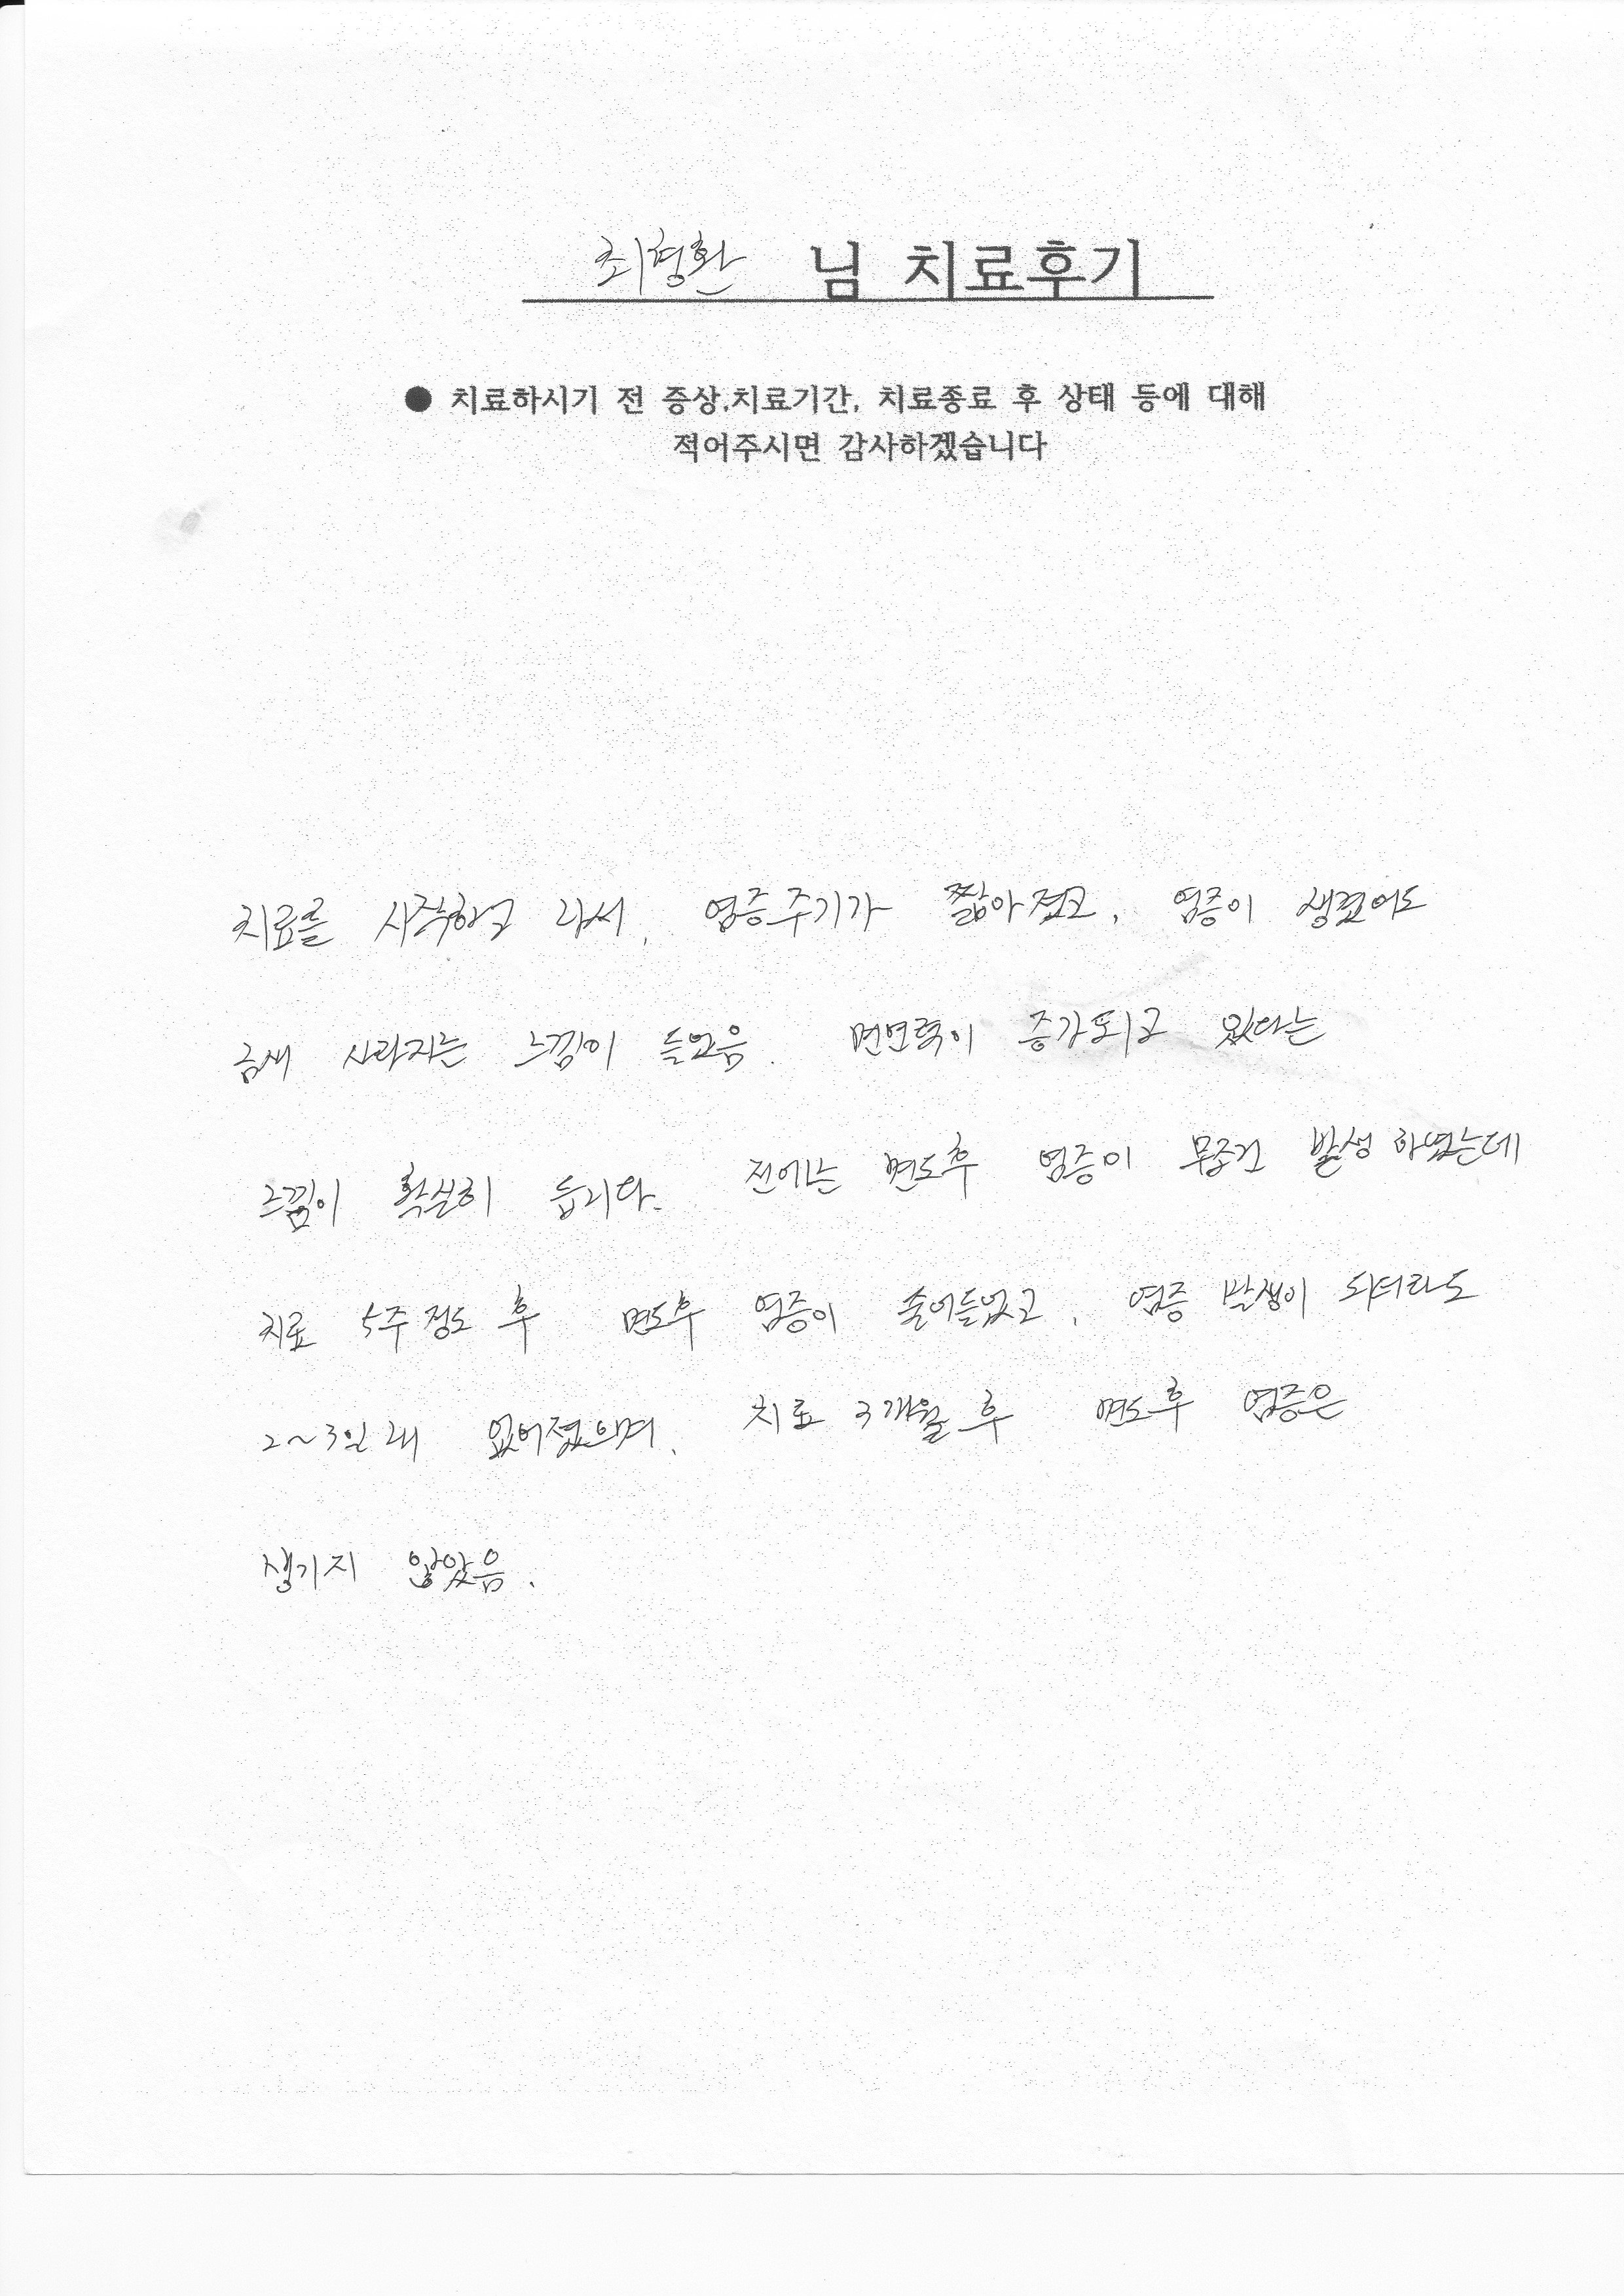 최형환 님 치료후기
● 치료하시기 전 증상,치료기간, 치료종료 후 상태 등에 대해
적어주시면 감사하겠습니다
치료를 시작하고 나서, 염증주기가 짧아졌고, 염증이 생겼어도
금새 사라지는 느낌이 들었음. 면연력이 증가되고 있다는
느낌이 확실히 듭니다. 전에는 면도후 염증이 무조건 발생 하였는데
치료 5주 정도 후 면도후 염증이 줄어들었고, 염증 발생이 되더라도
2~3일 내 없어졌으며, 치료 3개월 후 면도후 염증은
생기지 않았음.